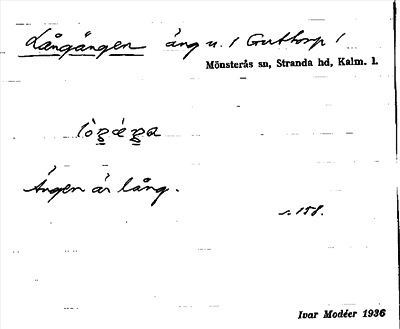 Långängen äng u. / Guttorp /
Mönsterås sn, Stranda hd, Kalm. l.
Ängen är lång.
s. 158.
Ivar Modéer 1936